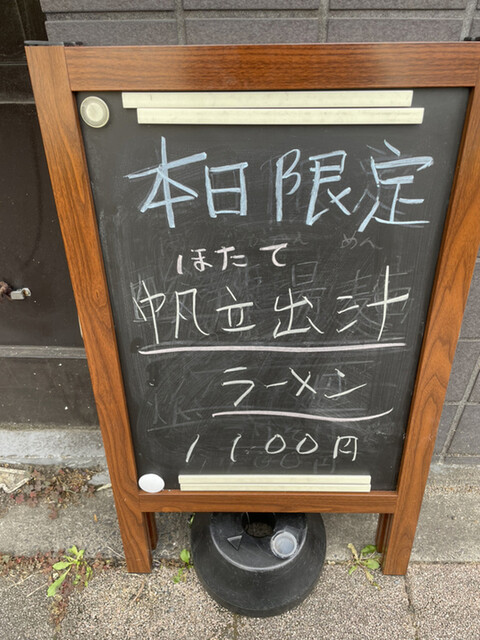 本日限定
ほたて
帆立出汁
ラーメン
1100円